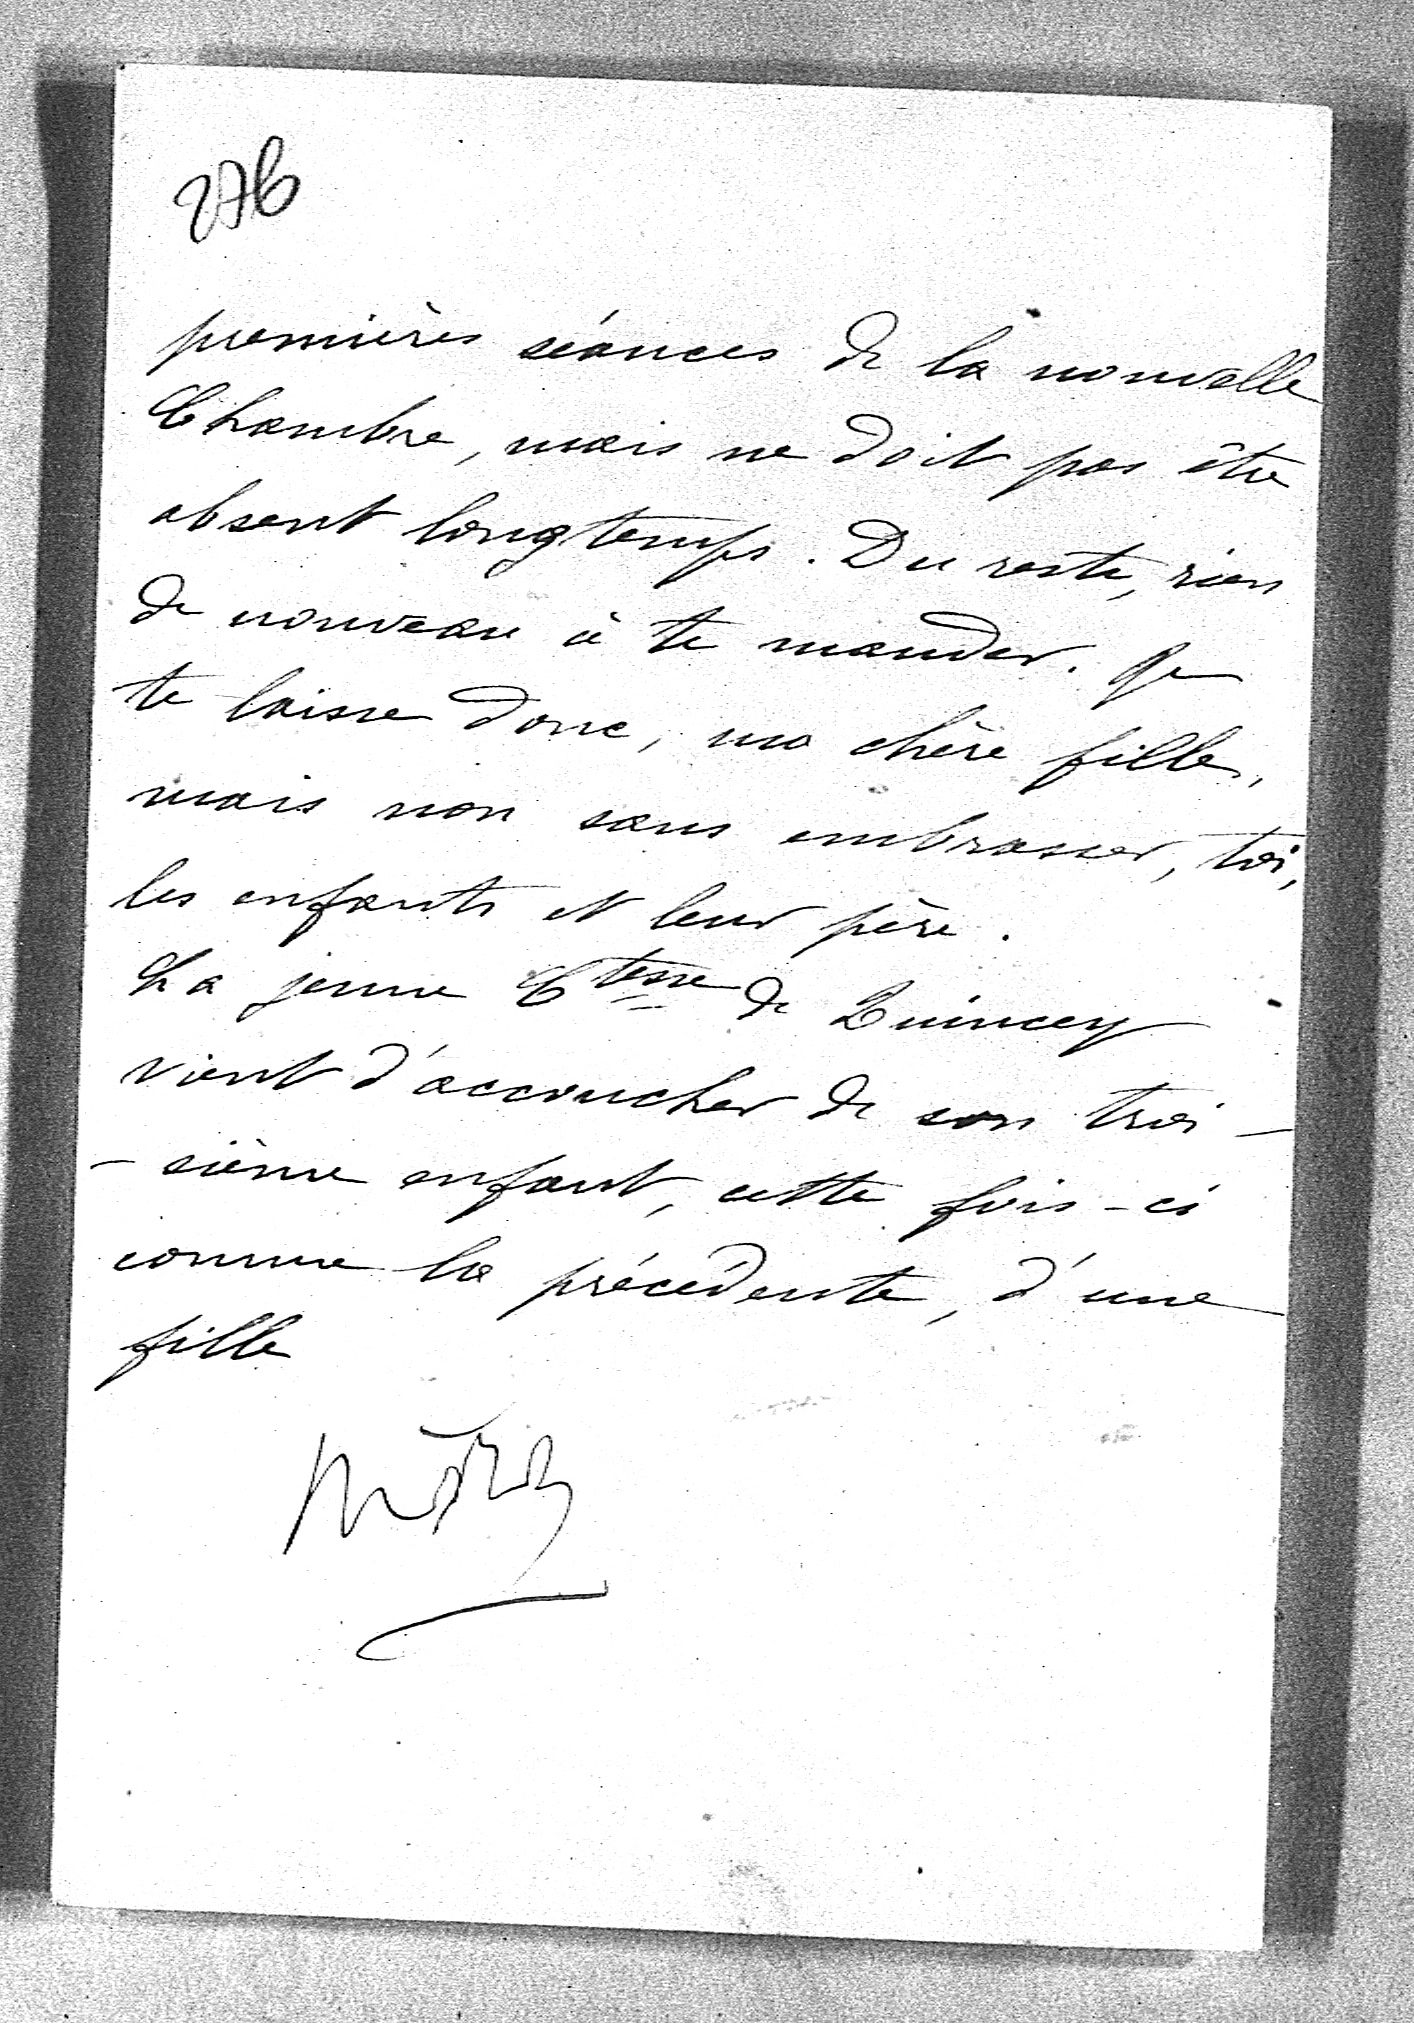 276
premières séances de la nouvelle
Chambre, mais ne doit pas être
absent longtemps. Du reste, rien
de nouveau à te mander. Je
te laisse donc, ma chère fille,
mais non sans embrasser, toi,
les enfants et leur père.
La jeune Ctesse de Quincey
vient d'accoucher de son troi-
-sième enfant, cette fois-ci
comme la précédente, d'une
fille